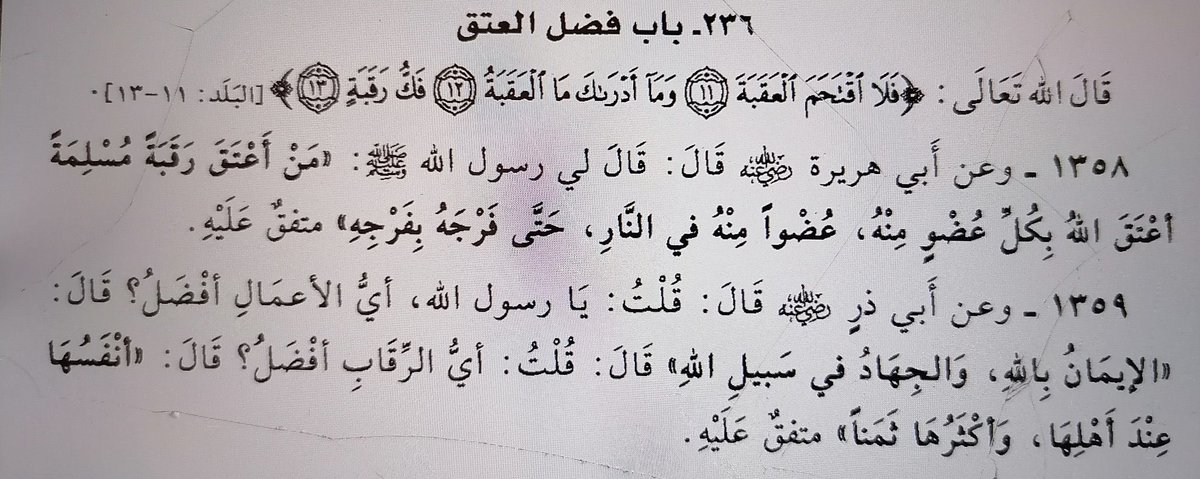 ٢٣٦ـ باب فضل العتق
قَالَ اللهُ تَعَالَى: ﴿فَلَا ٱقْتَحَمَ ٱلْعَقَبَةَ ١١ وَمَآ أَدْرَىٰكَ مَا ٱلْعَقَبَةُ ١٢ فَكُّ رَقَبَةٍ ١٣﴾ [البَلَد: ١١-١٣].
١٣٥٨ ـ وعن أَبي هريرة رضي الله عنه قَالَ: قَالَ لي رسول الله ﷺ: «مَنْ أَعْتَقَ رَقَبَةً مُسْلِمَةً
أعْتَقَ اللهُ بِكُلِّ عُضْوٍ مِنْهُ، عُضْواً مِنْهُ في النَّارِ، حَتَّى فَرْجَهُ بِفَرْجِهِ» متفقٌ عَلَيْهِ.
١٣٥٩ ـ وعن أَبي ذرٍ رضي الله عنه قَالَ: قُلْتُ: يَا رسول الله، أيُّ الأعمَالِ أفْضَلُ؟ قَالَ:
«الإيمَانُ بِاللهِ، وَالجِهَادُ في سَبيلِ اللهِ» قَالَ: قُلْتُ: أيُّ الرِّقَابِ أفْضَلُ؟ قَالَ: «أنْفَسُهَا
عِنْدَ أهْلِهَا، وَأكْثَرُهَا ثَمَناً» متفقٌ عَلَيْهِ.